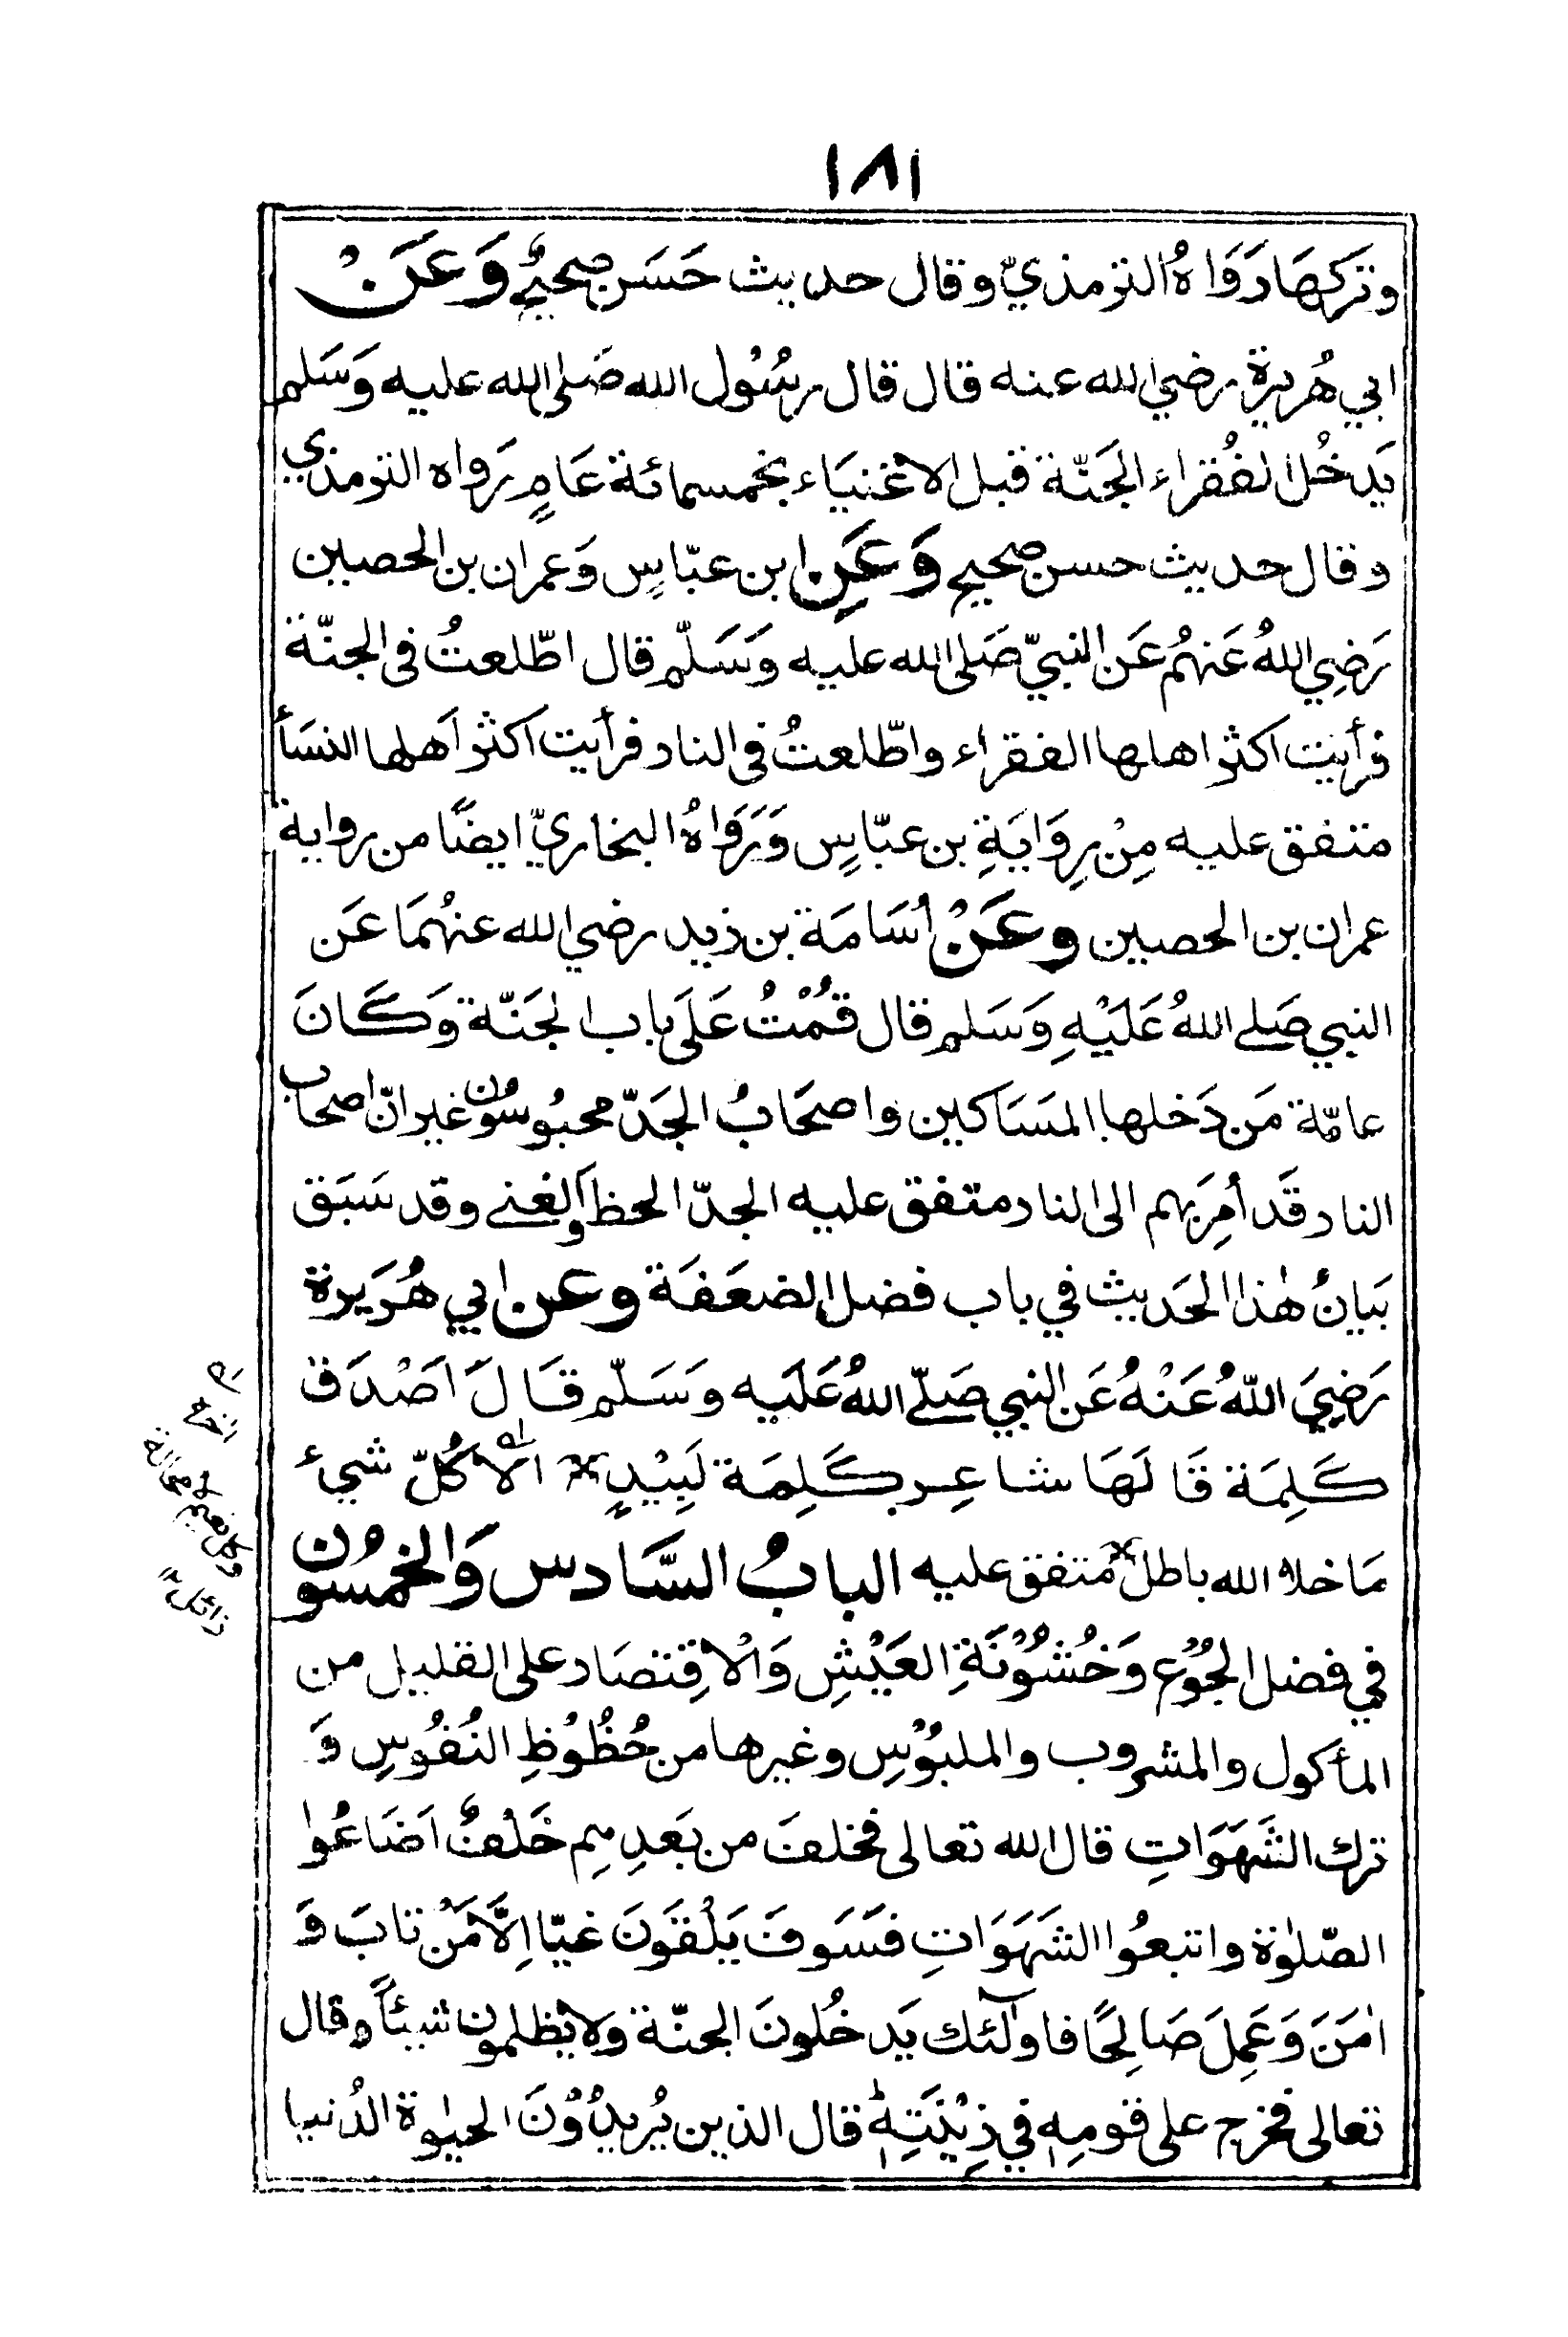 ١٨١
وتركها رَوَاهُ الترمذيّ وقال حديث حَسَن صحيحٌ وَعَنْ
ابي هُريرة رضي الله عنه قال قال رسُول الله صَلى الله عليه وَسَلم
يَدخُل الفُقراء الجَنّة قبل الاغنيَاء بخمسمائة عَامٍ رَواه الترمذي
وقال حديث حسن صحيح وَعَنِ ابن عبّاسٍ وَعمران بن الحصين
رَضِي اللهُ عَنهُم عَن النبيّ صَلى الله عليه وَسَلّم قال اطّلعتُ فى الجنّة
فرأيت اكثر اهلها الفقراء واطّلعتُ فى النار فرأيت اكثر اَهلها النسَأ
متفق عليه مِنْ رِوَايَةِ بن عبّاسٍ وَرَوَاهُ البخاريّ ايضًا من رواية
عمران بن الحصين وعَنْ اُسَامَة بن زيد رضي الله عنهُمَا عَن
النبي صَلے اللهُ عَلَيْهِ وَسَلم قال قُمْتُ عَلَى باب الجَنّة وَكَانَ
عامّة مَن دَخلها المَسَاكين واصحَابُ الجَدّ محبُوسُون غير انّ اصحاب
النار قَد أمِرَ بهم الى النار متفق عليه الجدّ الحظ والغنے وقد سَبَق
بَيانُ هٰذا الحَديث في باب فضل الضعَفَة وعن ابي هُرَيرة
رَضِيَ اللهُ عَنْهُ عَن النبي صَلّے اللهُ عَلَيه وسَلّم قَالَ اَصْدَق
كَلِمَة قَالَهَا شاعِر كَلِمَة لَبِيْدٍ الا كُلّ شيئ
مَا خلا الله باطل متفق عليه البابُ السَّادس وَالخمسُون
في فضل الجُوْع وَخُشُوْنَةِ العَيْشِ وَالاقِتصَار على القليل من
المأكول والمشروب والملبُوْسِ وغيرها من حُظُوْظِ النُفُوسِ وَ
ترك الشَهَوَاتِ قال الله تعالى فخلفَ من بَعدِهِم خَلْفٌ اَضَاعُوا
الصّلوٰة واتبعُوا الشَهَوَاتِ فسَوفَ يَلْقَونَ غيّا اِلَّا مَنْ تابَ وَ
اٰمَنَ وَعَمِلَ صَالِحًا فاولٰٓئك يَدخُلونَ الجنّة ولا يظلمون شيئاً وقال
تعالى فخرج على قومِهٖ في زِيْنَتِهٖ قال الذين يُريدُوْنَ الحيٰوة الدُنيا
وكل نعيم لا محالة
زائل